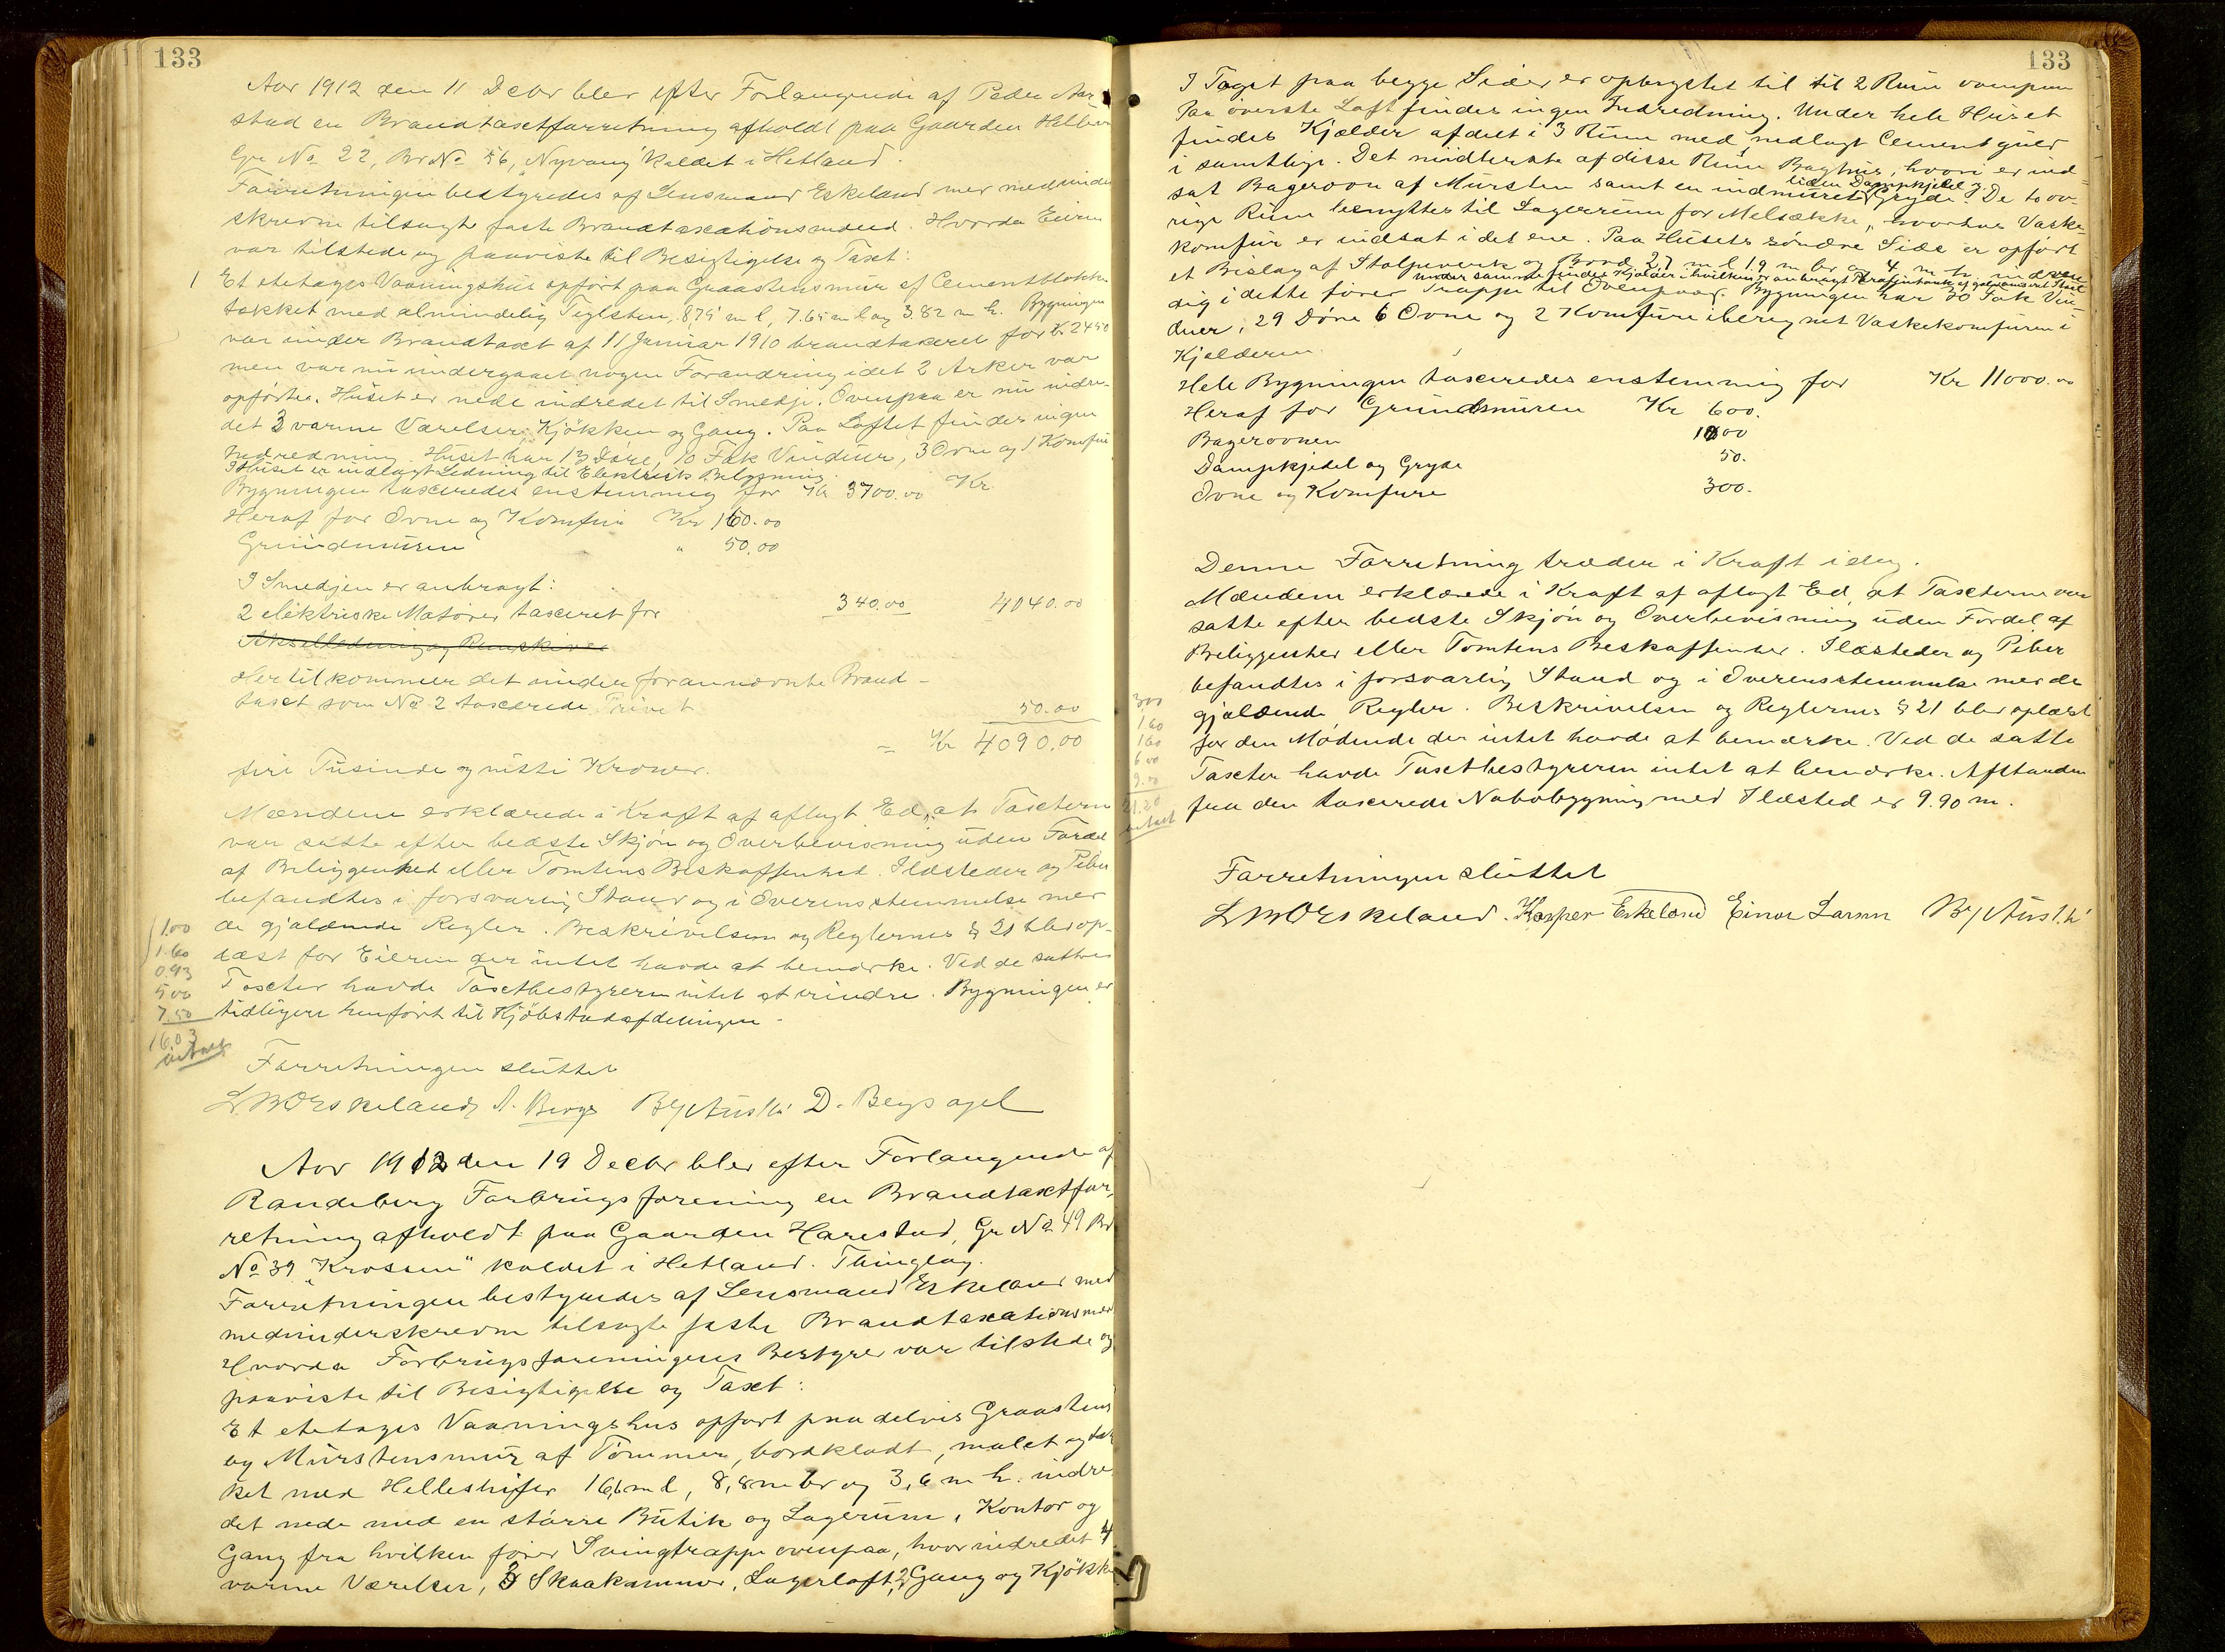 133
Aar 1912 den 11 Decbr blev efter Forlangende af Peder Aar-
stad en Brandtaxtforretning afholdt paa Gaarden Hillevaag
Gr No 22, Br No 56, "Nyvang" kaldet i Hetland.
Forretningen bestyredes af Lensmand Eskeland med medunder
skrevne tilsagte faste Brandtaxationsmænd. Hvorda Eieren
var tilstede og paaviste til Besigtigelse og Taxt:
1 Et etetages Vaaningshus opført paa Graastensmur af Cementblokke
tækket med almindelig Teglsten, 8,75 m l, 7.65 m br og 3.82 m h. Bygningen
var under Brandtaxt af 11 Januar 1910 brandtaxeret for Kr 2450
men var nu undergaaet nogen Forandring idet 2 Arker var
opførtes. Huset er nede indredet til Smedje. Ovenpaa er nu indre-
det 3 varme Værelser, Kjøkken og Gang. Paa Loftet findes ingen
Indredning. Huset har 13 Døre, 10 Fak Vinduer, 3 Ovne og 1 Komfur
I Huset er indlagt Ledning til Elektrisk Belysning.
Bygningen taxeredes enstemmig for Kr 3700.00 Kr
Heraf for Ovne og Komfur Kr 160.00
Grundmuren " 50.00
I Smedjen er anbragt:
2 elektriske Motorer taxeret for 340.00 4040.00
Akselledning og Remskiver
Hertil kommer det under forannævnte Brand-
taxt som No 2 taxerede Privet 50.00
= Kr 4090.00
fire Tusinde og nitti Kroner.
Mændene erklærede i Kraft af aflagt Ed, at Taxterne
var satte efter bedste Skjøn og Overbevisning uden Fordel
af Beliggenhed eller Tomtens Beskaffenhet. Ildsteder og Piber
befandtes i forsvarlig Stand og i Overensstemmelse med
de gjældende Regler. Beskrivelsen og Reglernes § 21 blev op-
læst for Eieren der intet havde at bemærke. Ved de satte
Taxter havde Taxtbestyreren intet at erindre. Bygningen er
tidligere henført til Kjøbstadafdelingen.
1.00
1.60
0.93
5.00
7.50
16.03
betalt
Forretningen sluttet
L M Eskeland A. Berge D. Bergsagel
Aar 1912 den 19 Decbr blev efter Forlangende af
Randeberg Forbrugsforening en Brandtaxtfor-
retning afholdt paa Gaarden Harestad, Gr No 49 Br
No 39 "Krossen" kaldet i Hetland. Thinglag.
Forretningen bestyredes af Lensmand Eskeland med
medunderskrevne tilsagte faste Brandtaxationsmænd
Hvorda Forbrugsforeningens Bestyrer var tilstede og
paaviste til Besigtigelse og Taxt:
Et etetages Vaaningshus opført paa delvis Graastens
og Murstensmur af Tømmer, bordklædt, malet og tæk
ket med Helleskifer 16,6 m l, 8,8 m br og 3,6 m h. indre
det nede med en større Butik og Lagerum, Kontor og
Gang fra hvilken fører Svingtrappe ovenpaa, hvor indredet 4
varme Værelser, 3 Skraakammer, Lagerloft, 2 Gang og Kjøkken
133
I Taget paa begge Sider er opbygget til til 2 Rum ovenpaa
Paa øverste Loft findes ingen Indredning. Under hele Huset
findes Kjælder afdelt i 3 Rum med nedlagt Cementgulv
i samtlige. Det midterste af disse Rum Baghus, hvori er ind-
sat Bagerovn af Mursten samt en indmuret liden Dampkjedel og Gryde. De to øv-
rige Rum benyttes til Lagerrum for Melsække, hvorhos Vaske-
komfur er indsat i det ene. Paa Husets søndre Side er opført
et Bislag af Stolpeverk og Bord, 2.7 m l 1.9 m br og 4 m h.
under samme findes Kjælder i hvilken er anbragt Petroleumstank af galvaniseret Staal
dig i dette fører Trappe til Ovenpaa. Bygningen har 30 Fak Vin
duer, 29 Døre 6 Ovne og 2 Komfure iberegnet Vaskekomfuren i
Kjælderen.
Hele Bygningen taxeredes enstemmig for Kr 11000.00
Heraf for Grundmuren Kr 600.
Bagerovnen 1000
Dampkjedel og Gryde 50.
Ovne og Komfure 300.
Denne Forretning træder i Kraft idag.
Mændene erklærede i Kraft af aflagt Ed, at Taxterne var
satte efter bedste Skjøn og Overbevisning uden Fordel af
Beliggenhed eller Tomtens Beskaffenhed. Ildsteder og Piber
befandtes i forsvarlig Stand og i Overensstemmelse med de
gjældende Regler. Beskrivelsen og Reglernes § 21 blev oplæst
for den Mødende der intet havde at bemærke. Ved de satte
Taxter havde Taxtbestyreren intet at bemærke. Afstanden
fra den taxerede Nabobygning med Ildsted er 9.90 m.
300
160
160
600
9.00
21.20
betalt
Forretningen sluttet
L M Eskeland. Kasper Eskeland Einar Larsen